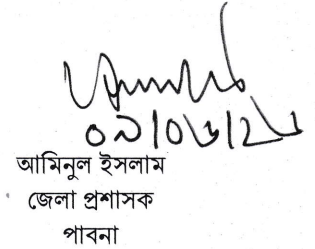 ০৯/০৬/২৬
আমিনুল ইসলাম
জেলা প্রশাসক
পাবনা